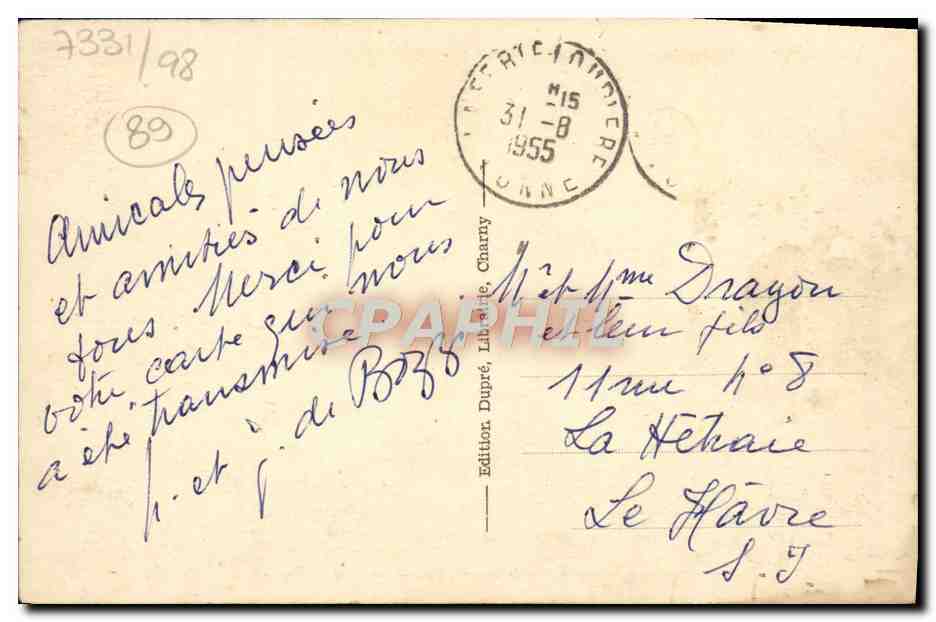 7331/98
89
Amicales pensées
et amitiés de nous
tous. Merci pour
votre carte qui nous
a été transmise.
p. et j. de
LA FERTE LOUPIERE
H15
31 -8
1955
YONNE
Edition Dupré, Librairie, Charny
CPAPHIL
Mr et Mme Dragon
et leur fils
11 rue No 8
La Hêtraie
Le Hâvre
S.I.